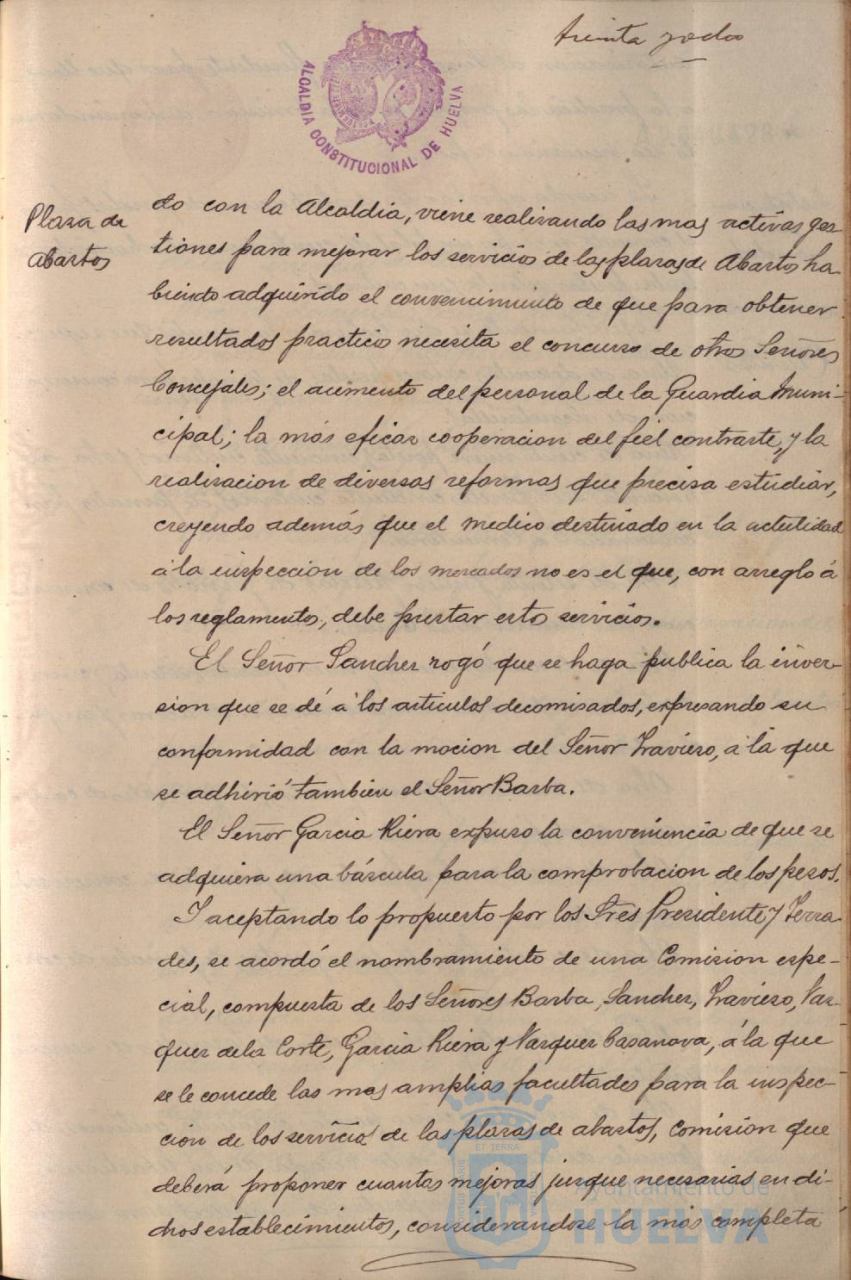 treinta y dos
ALCALDIA CONSTITUCIONAL DE HUELVA
Plaza de
abastos
do con la Alcaldia, viene realizando las mas activas ges-
tiones para mejorar los servicios de las plazas de Abastos ha-
biendo adquirido el convencimiento de que para obtener
resultados practicos necesita el concurso de otros Señores
Concejales; el aumento del personal de la Guardia Muni-
cipal; la más eficaz cooperacion del fiel contraste, y la
realizacion de diversas reformas que precisa estudiar,
creyendo además que el medico destinado en la actulidad
á la inspeccion de los mercados no es el que, con arreglo á
los reglamentos, debe prestar estos servicios.
El Señor Sanchez rogó que se haga publica la inver-
sion que se dé á los articulos decomisados, expresando su
conformidad con la mocion del Señor Travieso, á la que
se adhirió tambien el Señor Barba.
El Señor Garcia Riera expuso la conveniencia de que se
adquiera una báscula para la comprobacion de los pesos.
Y aceptando lo propuesto por los Sres Presidente y Terra-
des, se acordó el nombramiento de una Comision espe-
cial, compuesta de los Señores Barba, Sanchez, Travieso, Vaz-
quez de la Corte, Garcia Riera y Vazquez Casanova, á la que
se le concede las mas amplias facultades para la inspec-
cion de los servicios de las plazas de abastos, comision que
deberá proponer cuantas mejoras juzgue necesarias en di-
chos establecimientos, considerandose la más completa
Ayuntamiento de
HUELVA